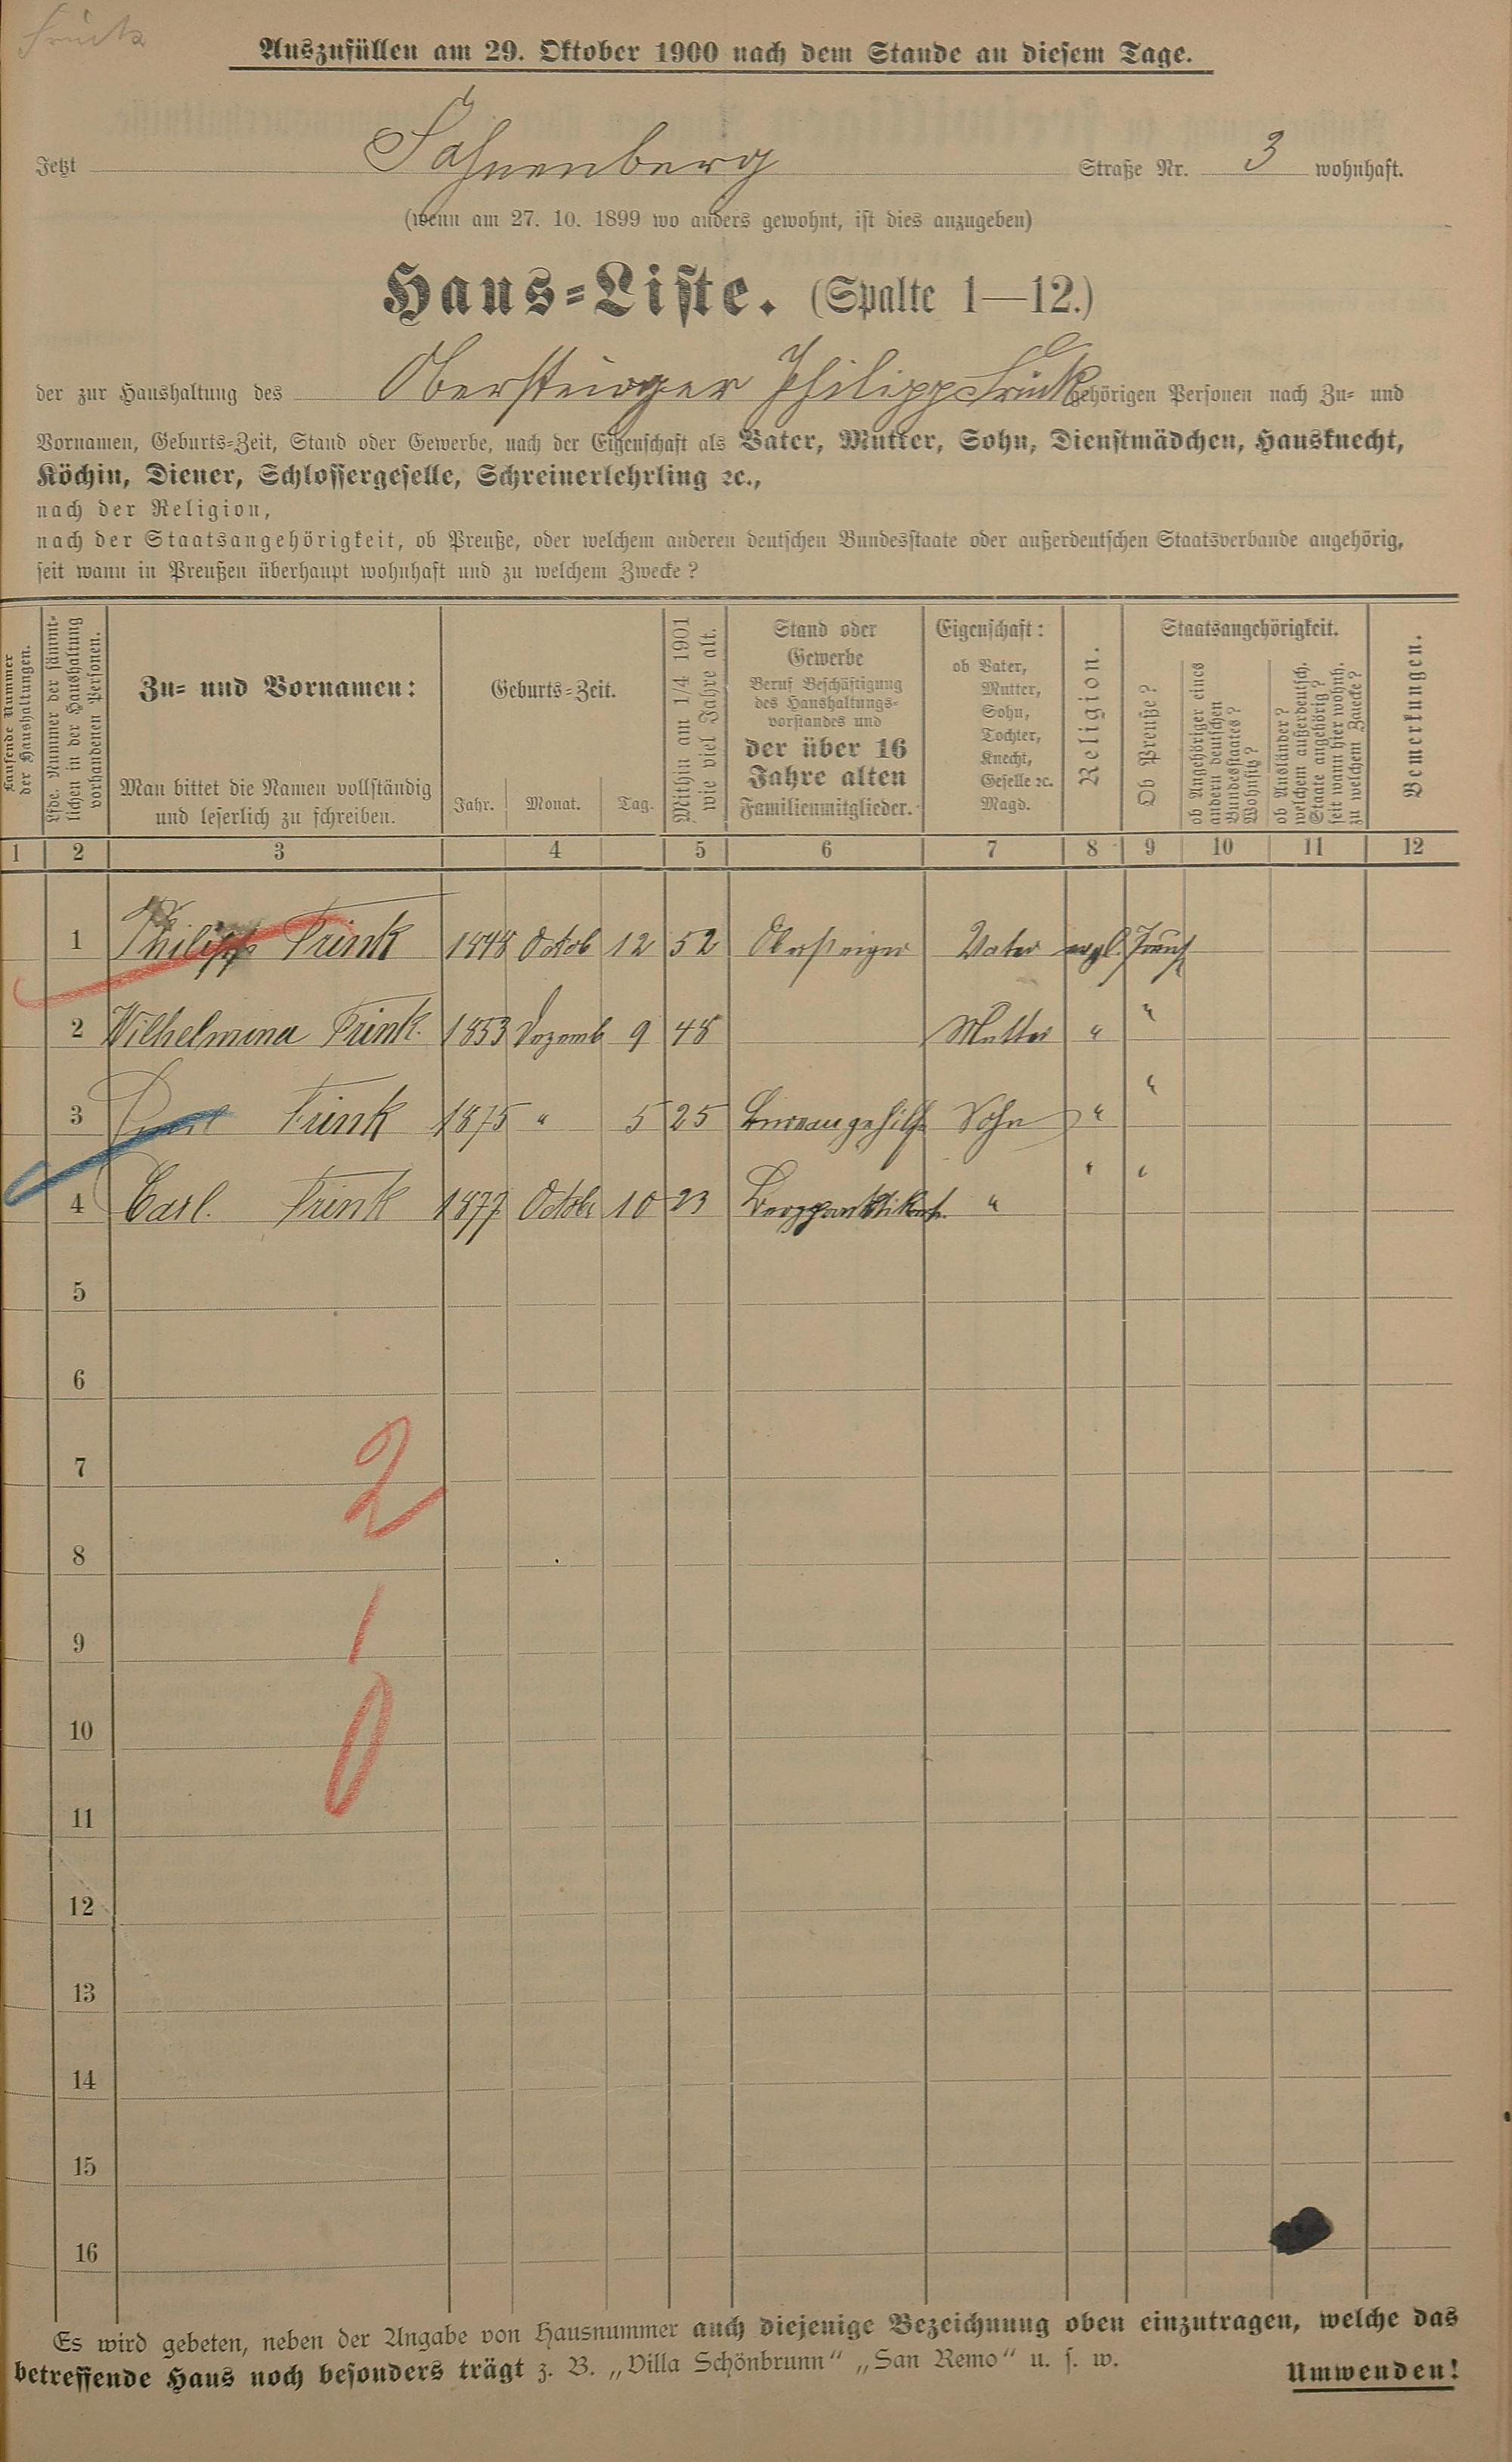 Frink
Auszufüllen am 29. Oktober 1900 nach dem Stande an diesem Tage.
Jetzt Sahnenberg Straße Nr. 3 wohnhaft.
(wenn am 27. 10. 1899 wo anders gewohnt, ist dies anzugeben)
Haus=Liste. (Spalte 1—12.)
der zur Haushaltung des Obersteiger Philipp Frink gehörigen Personen nach Zu= und
Vornamen, Geburts=Zeit, Stand oder Gewerbe, nach der Eigenschaft als Vater, Mutter, Sohn, Dienstmädchen, Hausknecht,
Köchin, Diener, Schlossergeselle, Schreinerlehrling ꝛc.,
nach der Religion,
nach der Staatsangehörigkeit, ob Preuße, oder welchem anderen deutschen Bundesstaate oder außerdeutschen Staatsverbande angehörig,
seit wann in Preußen überhaupt wohnhaft und zu welchem Zwecke?
Laufende Nummer
der Haushaltungen.
Lfde. Nummer der sämmt-
lichen in der Haushaltung
vorhandenen Personen.
Zu= und Vornamen:
Man bittet die Namen vollständig
und leserlich zu schreiben.
Geburts=Zeit.
Jahr. Monat. Tag.
Mithin am 1/4 1901
wie viel Jahre alt.
Stand oder
Gewerbe
Beruf Beschäftigung
des Haushaltungs-
vorstandes und
der über 16
Jahre alten
Familienmitglieder.
Eigenschaft:
ob Vater,
Mutter,
Sohn,
Tochter,
Knecht,
Geselle ꝛc.
Magd.
Religion.
Staatsangehörigkeit.
Ob Preuße?
ob Angehöriger eines
andern deutschen
Bundesstaates?
Wohnsitz?
ob Ausländer?
welchem außerdeutsch.
Staate angehörig?
seit wann hier wohnh.
zu welchem Zwecke?
Bemerkungen.
1 2 3 4 5 6 7 8 9 10 11 12
1 Philipp Frink 1848 Octob 12 52 Obersteiger Vater evgl. Preuß
2 Wilhelmina Frink. 1853 Dezemb 9 48 Mutter " "
3 Frink 1875 " 5 25 Bureaugehilfe Sohn " "
4 Carl. Frink 1877 October 10 23 Bergpraktikant. " " "
5
6
7
2
8
9
1
10
0
11
12
13
14
15
16
Es wird gebeten, neben der Angabe von Hausnummer auch diejenige Bezeichnung oben einzutragen, welche das
betreffende Haus noch besonders trägt z. B. „Villa Schönbrunn“ „San Remo“ u. s. w.
Umwenden!